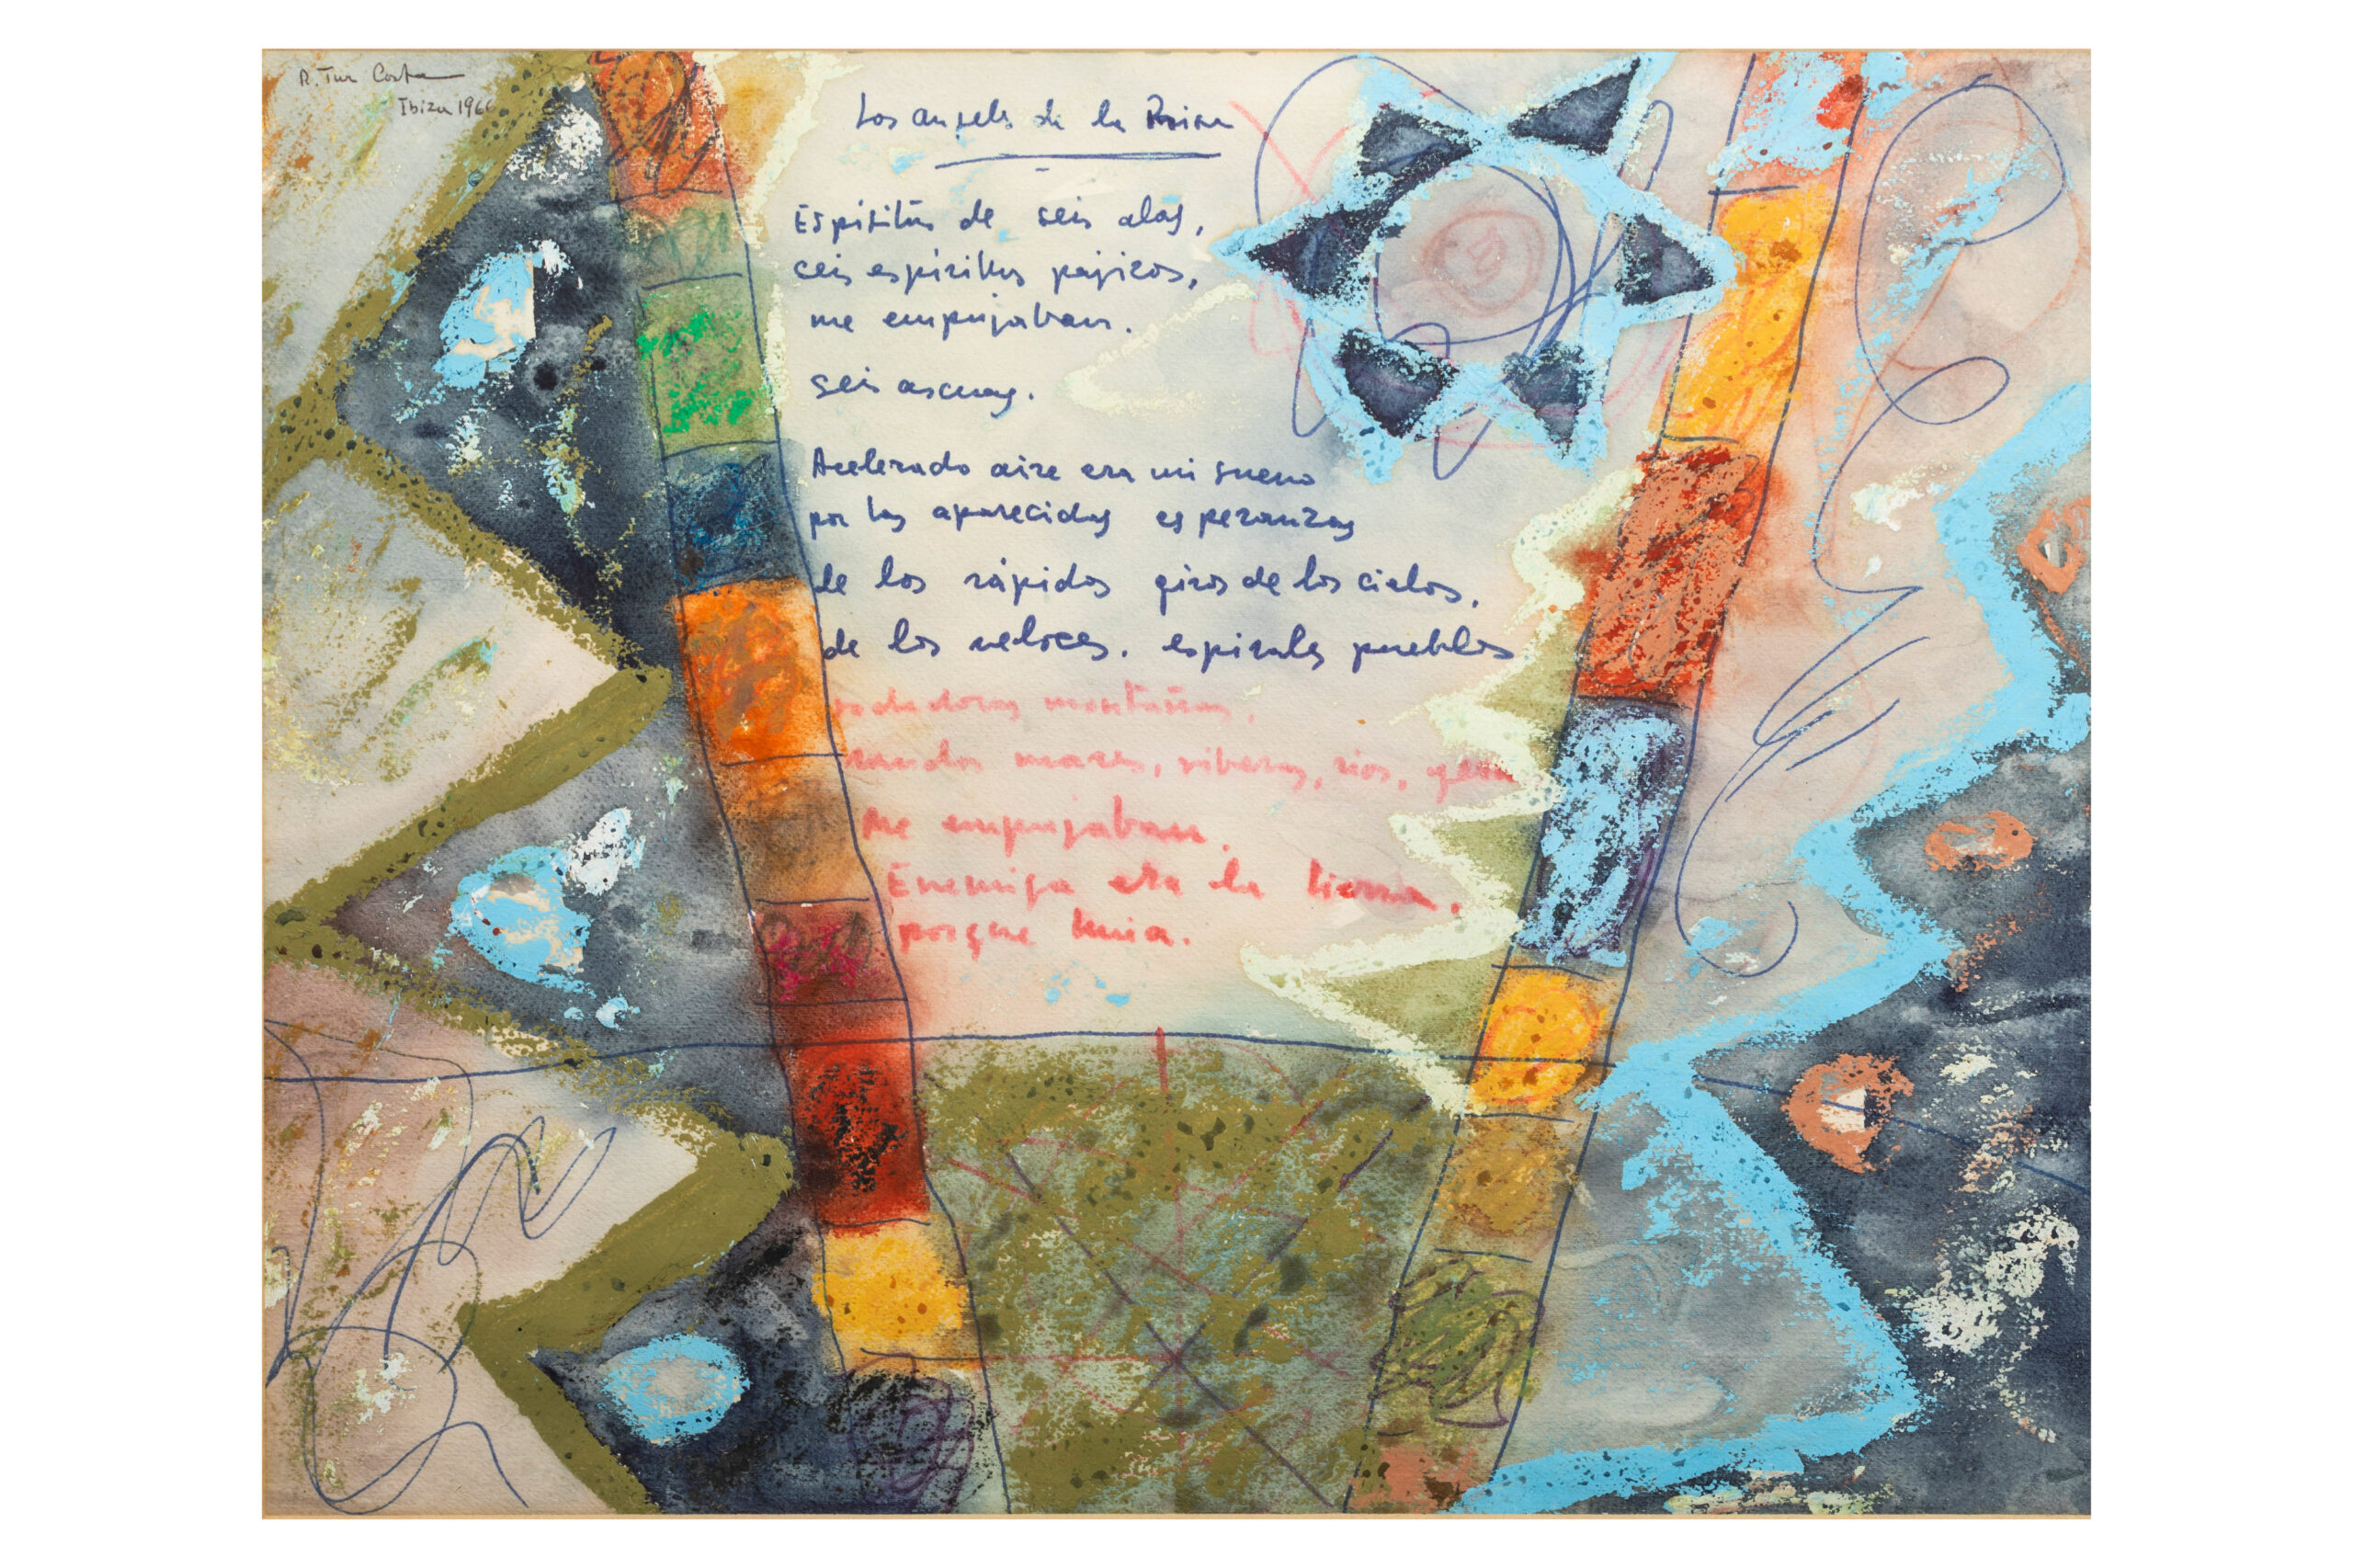 R. Tur Costa
Ibiza 1966
Los angeles de la Prisa
Espíritus de seis alas,
seis espíritus pajizos,
me empujaban.
Seis ascuas.
Acelerado aire era mi sueno
por las aparecidas esperanzas
de los rápidos giros de los cielos,
de los veloces, espirales pueblos
rodadoras montañas,
raudos mares, riberas, ríos,
Me empujaban.
Enemiga era la tierra,
porque huia.